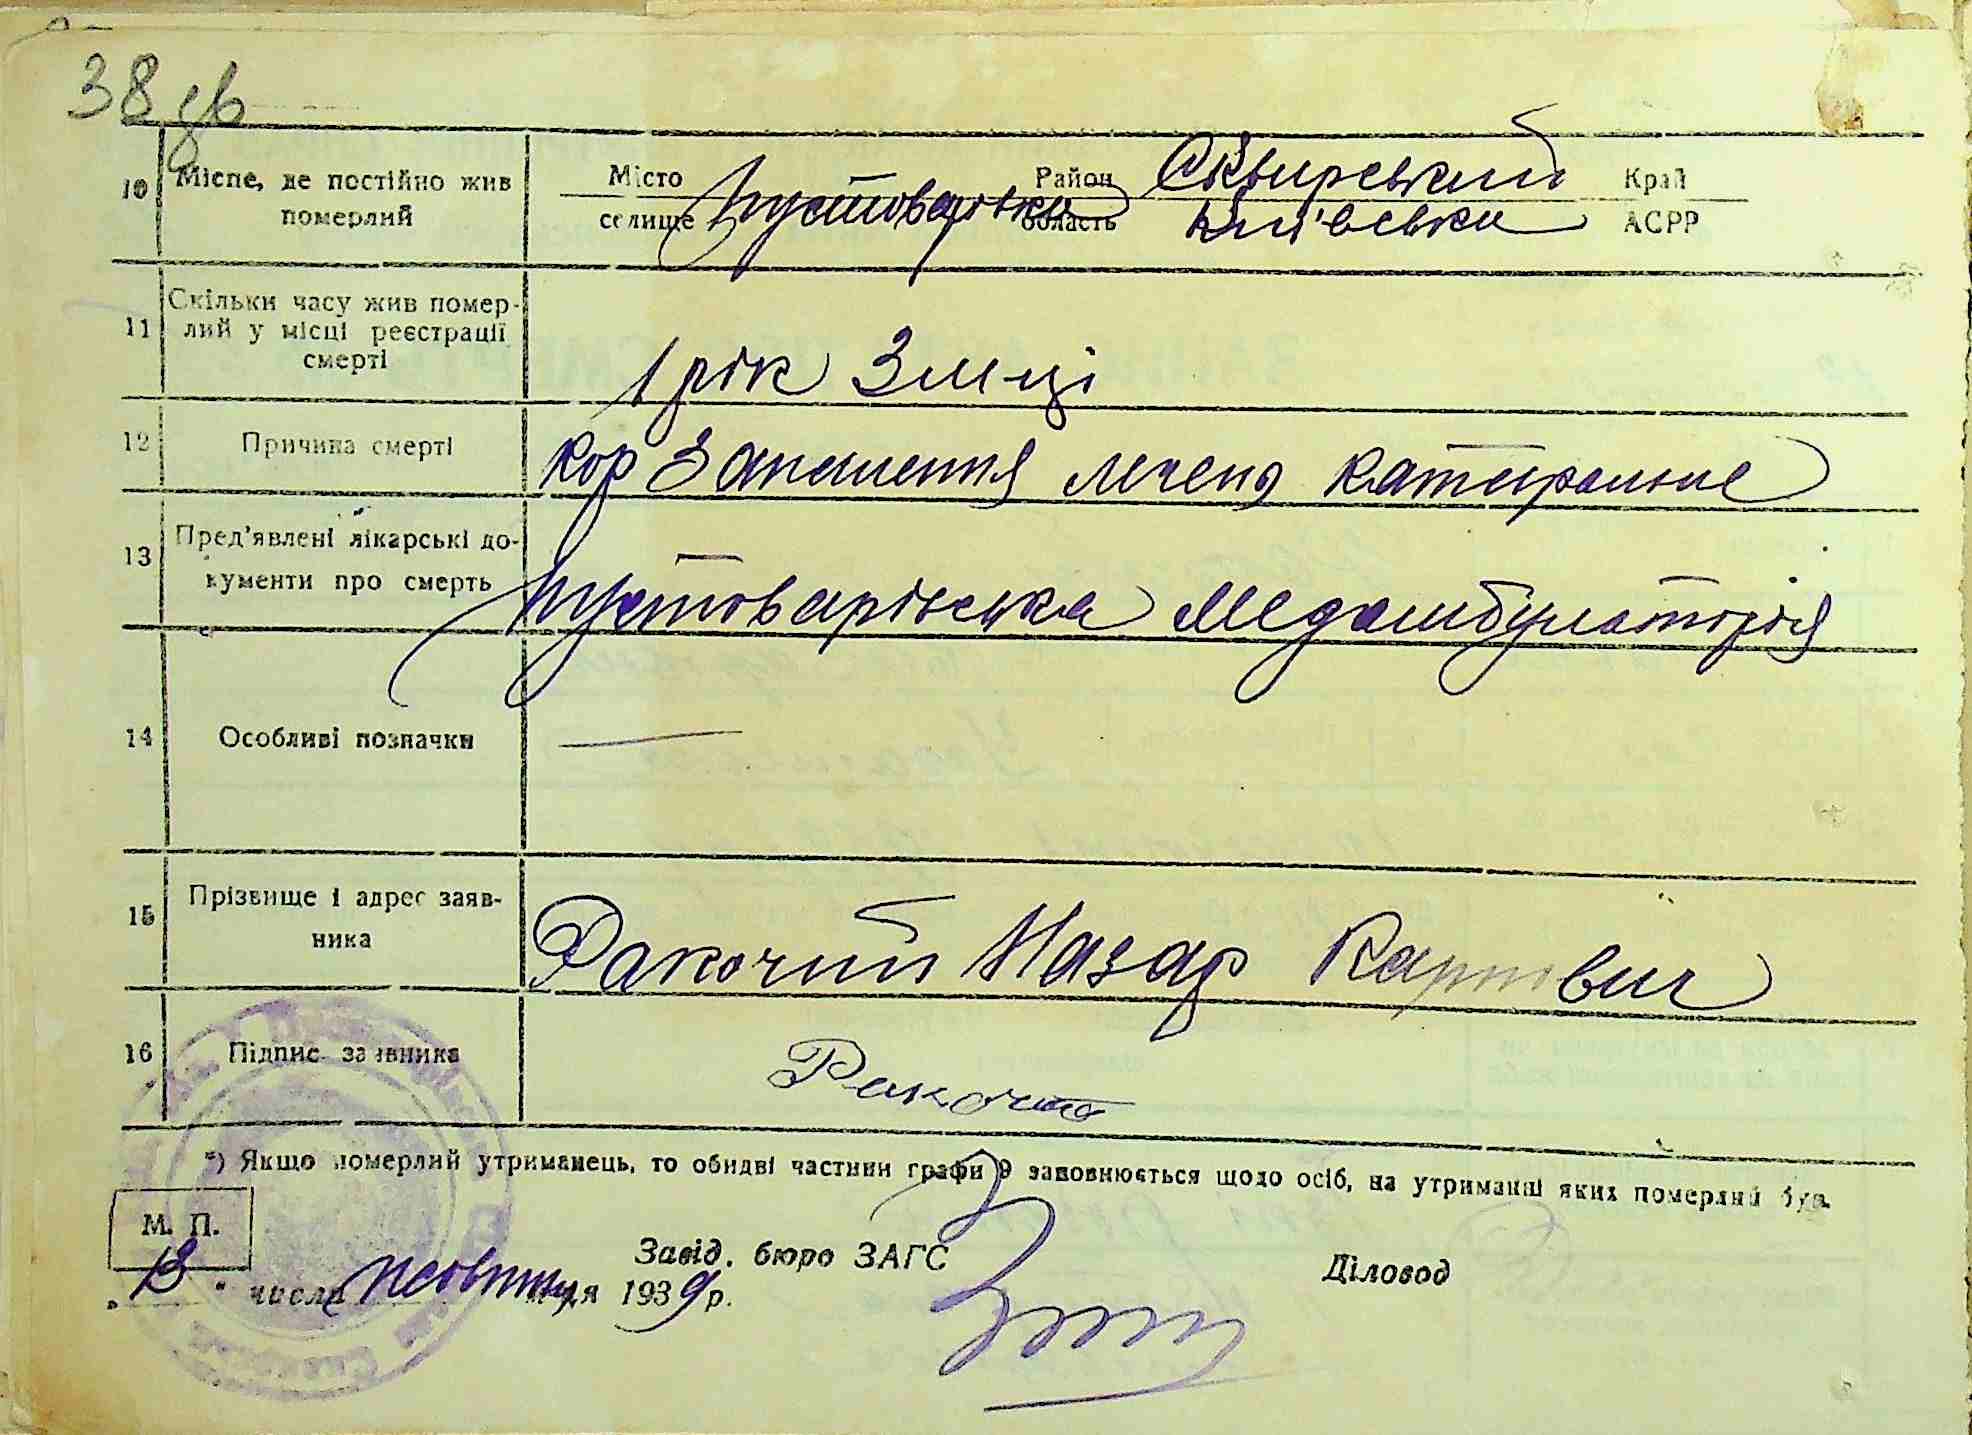 38 зв
10 Місце, де постійно жив померлий
Місто селище Пустоварівка Район Сквирський область Київська Край АСРР
11 Скільки часу жив помер-
лий у місці реєстрації
смерті
1 рік 3 м-ці
12 Причина смерті кор Запалення легень катаральне
13 Пред'явлені лікарські до-
кументи про смерть
Пустоварівська Медамбулаторія
14 Особливі позначки —
15 Прізвище і адрес заяв-
ника
Ракочий Назар Карпович
16 Підпис заявника Ракочий
*) Якщо померлий утриманець, то обидві частини графи 9 заповнюється щодо осіб, на утриманні яких померлий був.
М. П.
Завід. бюро ЗАГС Діловод
„13" числа жовтня м-ця 1939 р.